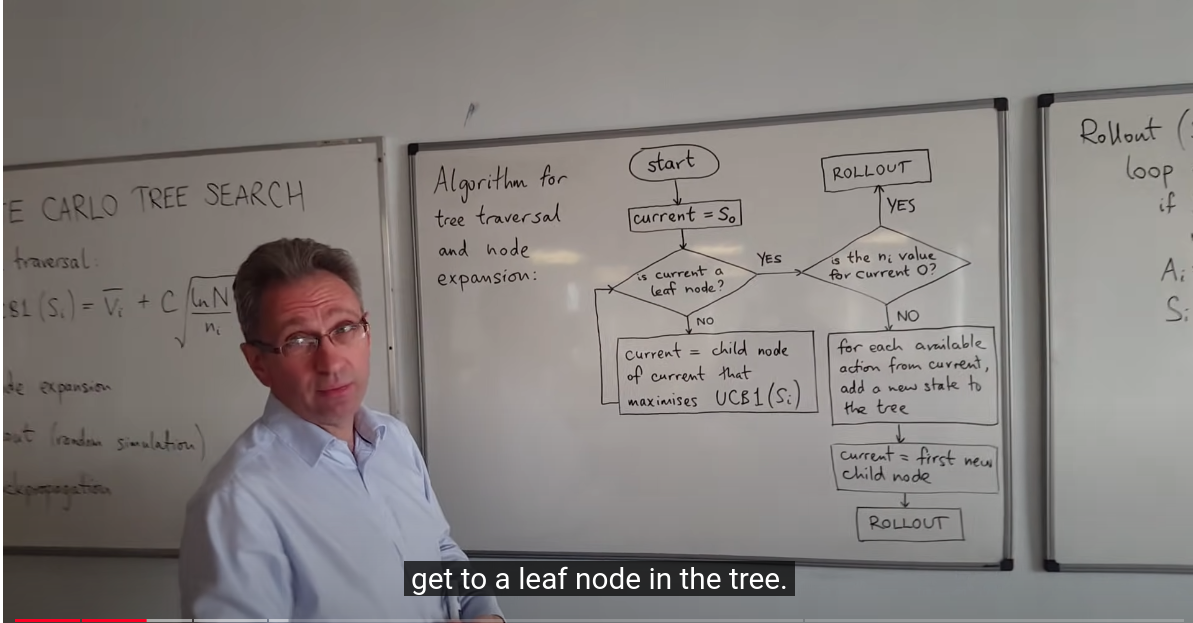 E CARLO TREE SEARCH
traversal:
B1 (Si) = V̅i + C √(lnN / ni)
de expansion
out (random simulation)
ckpropagation
Algorithm for
tree traversal
and node
expansion:
start
current = S₀
is current a
leaf node?
YES
NO
current = child node
of current that
maximises UCB1(Si)
ROLLOUT
YES
is the ni value
for current 0?
NO
for each available
action from current,
add a new state to
the tree
current = first new
child node
ROLLOUT
Rollout (
loop
if
Ai
Si
get to a leaf node in the tree.